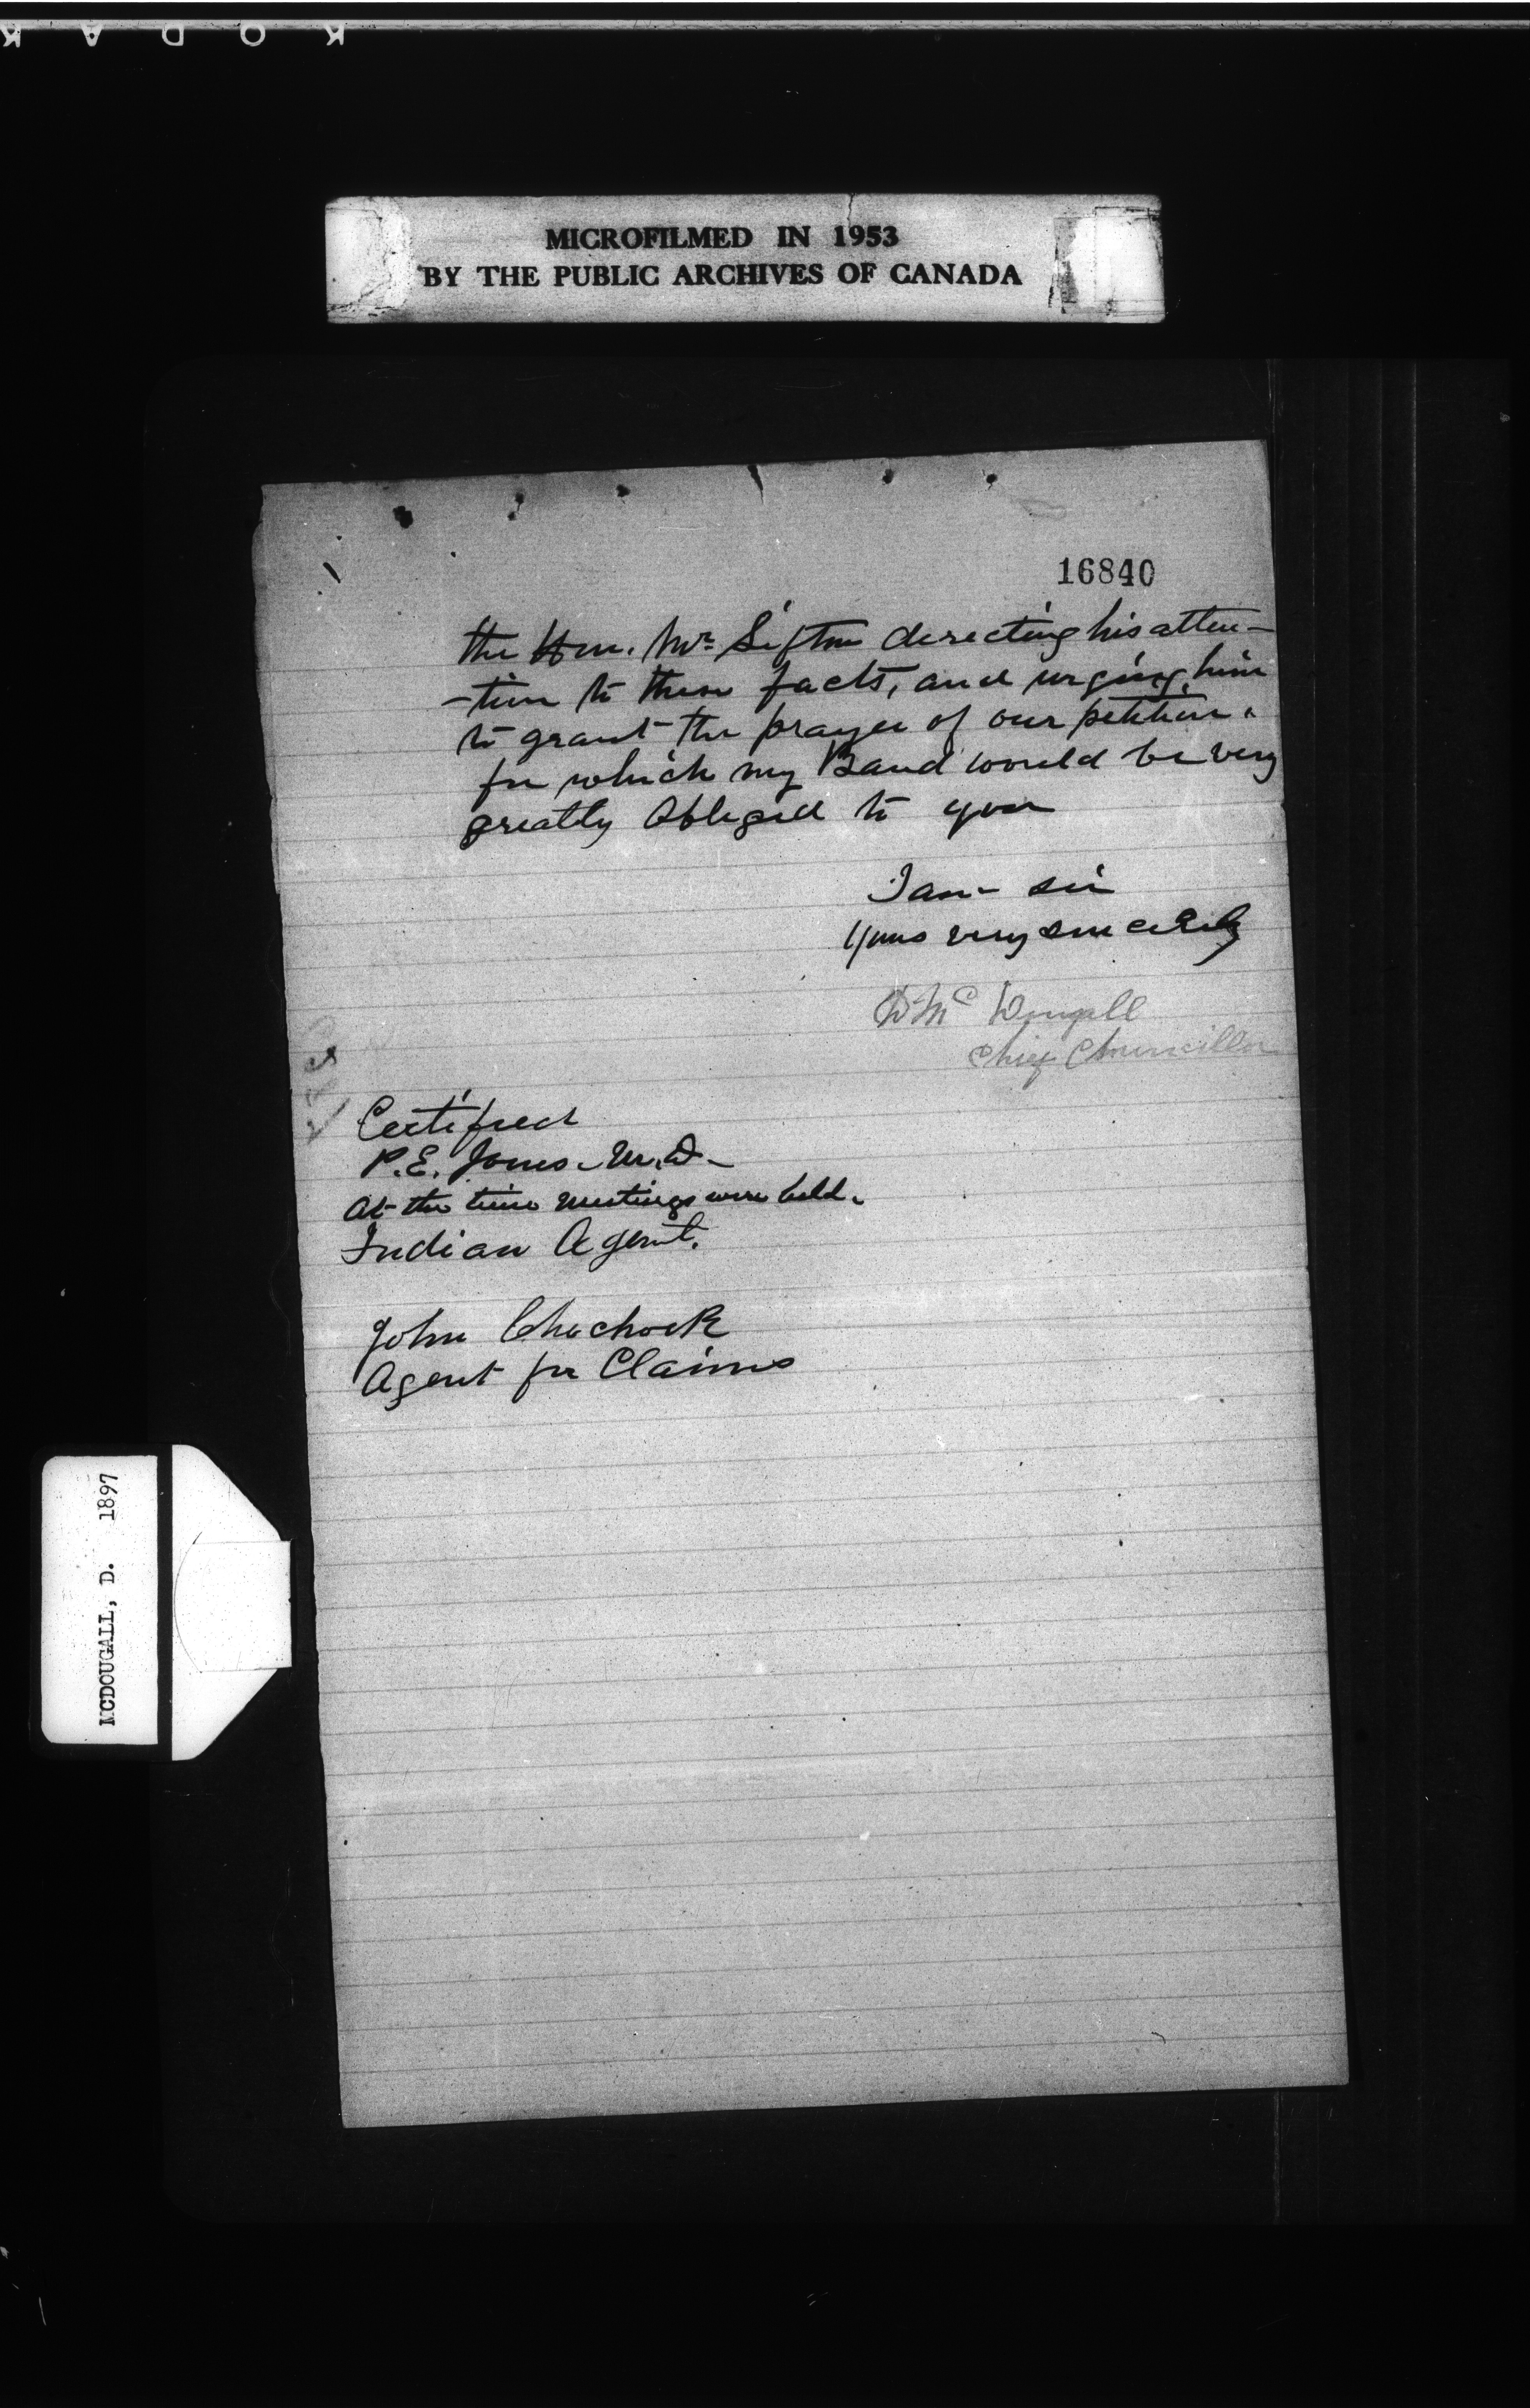 KODAK
MICROFILMED IN 1953
BY THE PUBLIC ARCHIVES OF CANADA
16840
the Hon. Mr. Sifton directing his atten-
-tion to these facts, and urging him
to grant the prayer of our petition.
for which my Band would be very
greatly obliged to you
I am sir
Yours very sincerely
D McDougall
Chief Councillor
Certified
P.E. Jones. M.D.
At the time meetings were held.
Indian Agent.
John Chechock
Agent for Claims
MCDOUGALL, D. 1897